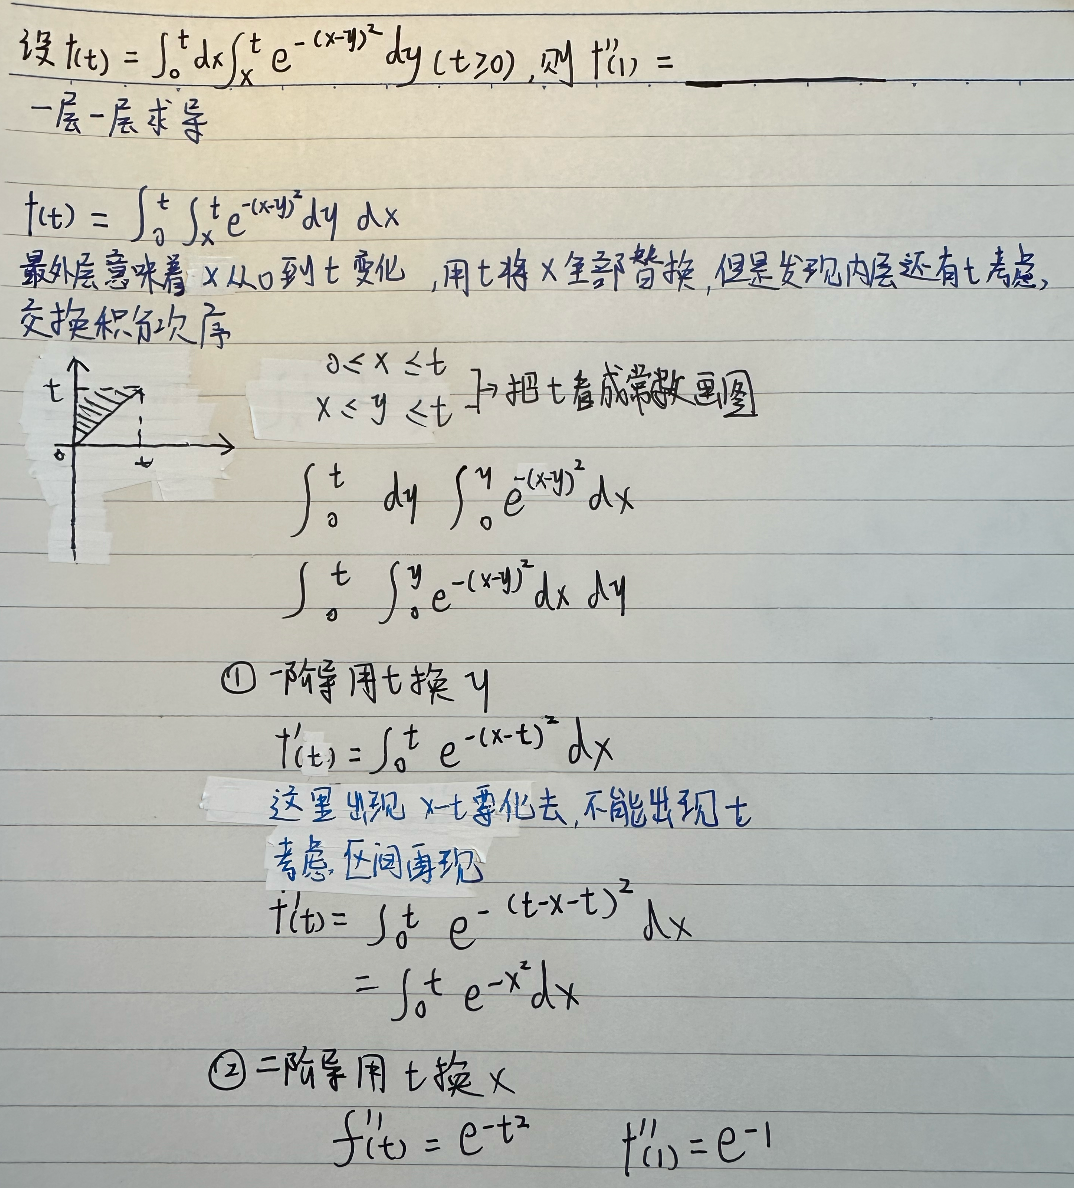 设f(t) = ∫₀ᵗ dx∫ₓᵗ e^{-(x-y)²} dy (t≥0),则 f''(1) = ______
一层一层求导
f(t) = ∫₀ᵗ ∫ₓᵗ e^{-(x-y)²} dy dx
最外层意味着 x从0到t变化,用t将x全部替换,但是发现内层还有t考虑,
交换积分次序
t
0
t
0 ≤ x ≤ t
x ≤ y ≤ t
→把t看成常数画图
∫₀ᵗ dy ∫₀ʸ e^{-(x-y)²} dx
∫₀ᵗ ∫₀ʸ e^{-(x-y)²} dx dy
① 一阶导用t换y
f'(t) = ∫₀ᵗ e^{-(x-t)²} dx
这里出现x-t要化去,不能出现t
考虑区间再现
f'(t) = ∫₀ᵗ e^{-(t-x-t)²} dx
= ∫₀ᵗ e^{-x²} dx
② 二阶导用t换x
f''(t) = e^{-t²} f''(1) = e^{-1}